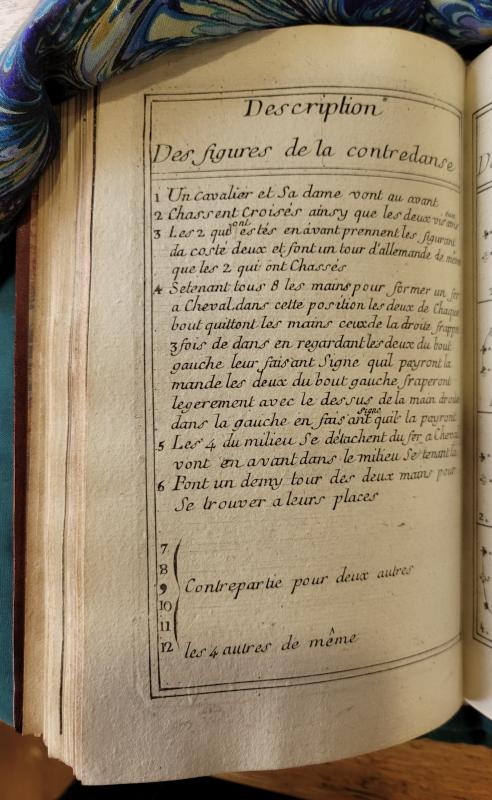 Description
Des figures de la contredanse
1 Un Cavalier et Sa dame vont au avant
2 Chassent Croisés ainsy que les deux vis avis
3 Les 2 qui ont estés en avant prennent les figurant
da costé deux et font un tour d'allemande de même
que les 2 qui ont Chassés
4 Se tenant tous 8 les mains pour former un fer
a Cheval dans cette position les deux de Chaque
bout quittont les mains ceux de la droite frappe
3 fois de dans en regardant les deux du bout
gauche leur faisant Signe quil payront la
mande les deux du bout gauche fraperont
legerement avec le dessus de la main droite
dans la gauche en faisant signe quil la payront
5 Les 4 du milieu Se détachent du fer a Cheval
vont en avant dans le milieu Se tenant la
6 Font un demy tour des deux mains pour
Se trouver a leurs places
7
8
9 Contrepartie pour deux autres
10
11
12 les 4 autres de même